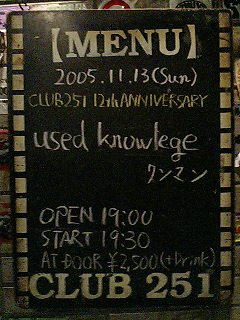 【MENU】
2005.11.13(Sun)
CLUB251 12th ANNIVERSARY
used knowlege
ワンマン
OPEN 19:00
START 19:30
AT DOOR ¥2,500(+Drink)
CLUB 251